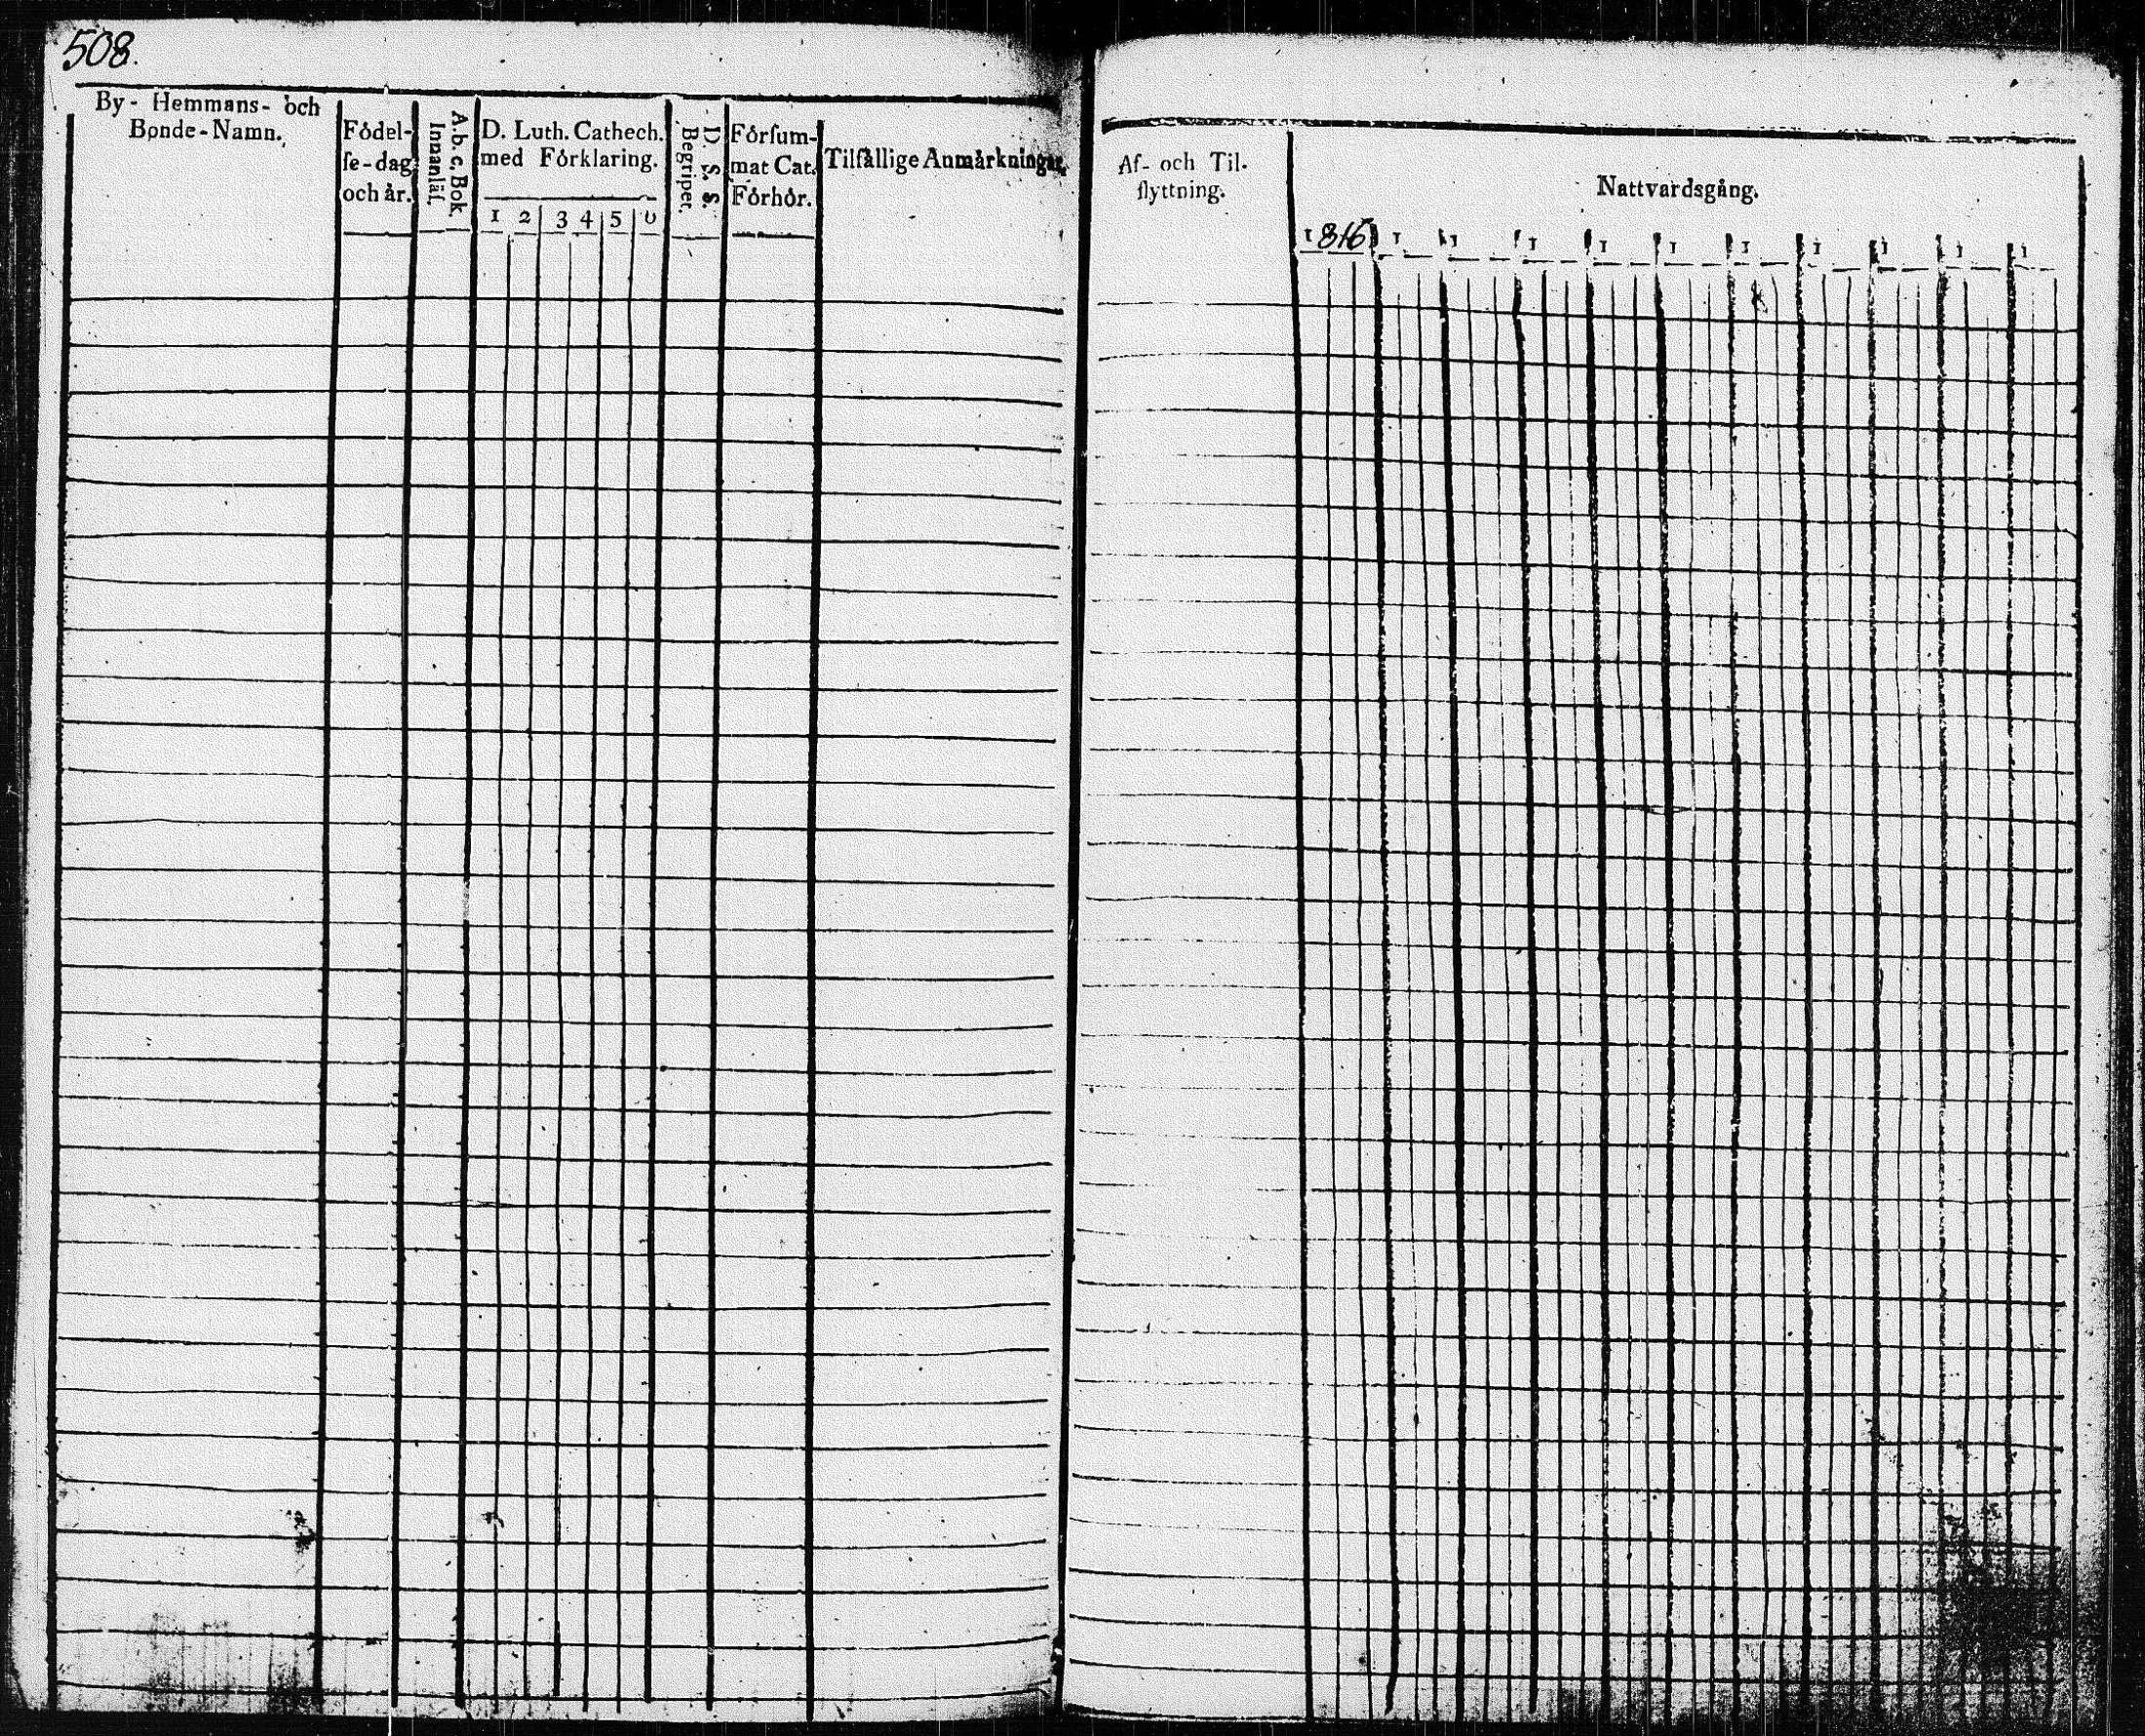 508.
By- Hemmans- och
Bonde-Namn.
Födel-
ſe-dag
och år.
A.b.c.Bok.
Innanläſ.
D. Luth. Cathech.
med Förklaring.
1 2 3 4 5 6
D. S. S.
Begriper.
Förſum-
mat Cat.
Förhör.
Tilfällige Anmärkningar.
Af- och Til-
flyttning.
Nattvardsgång.
1816 1 1 1 1 1 1 1 1 1 1